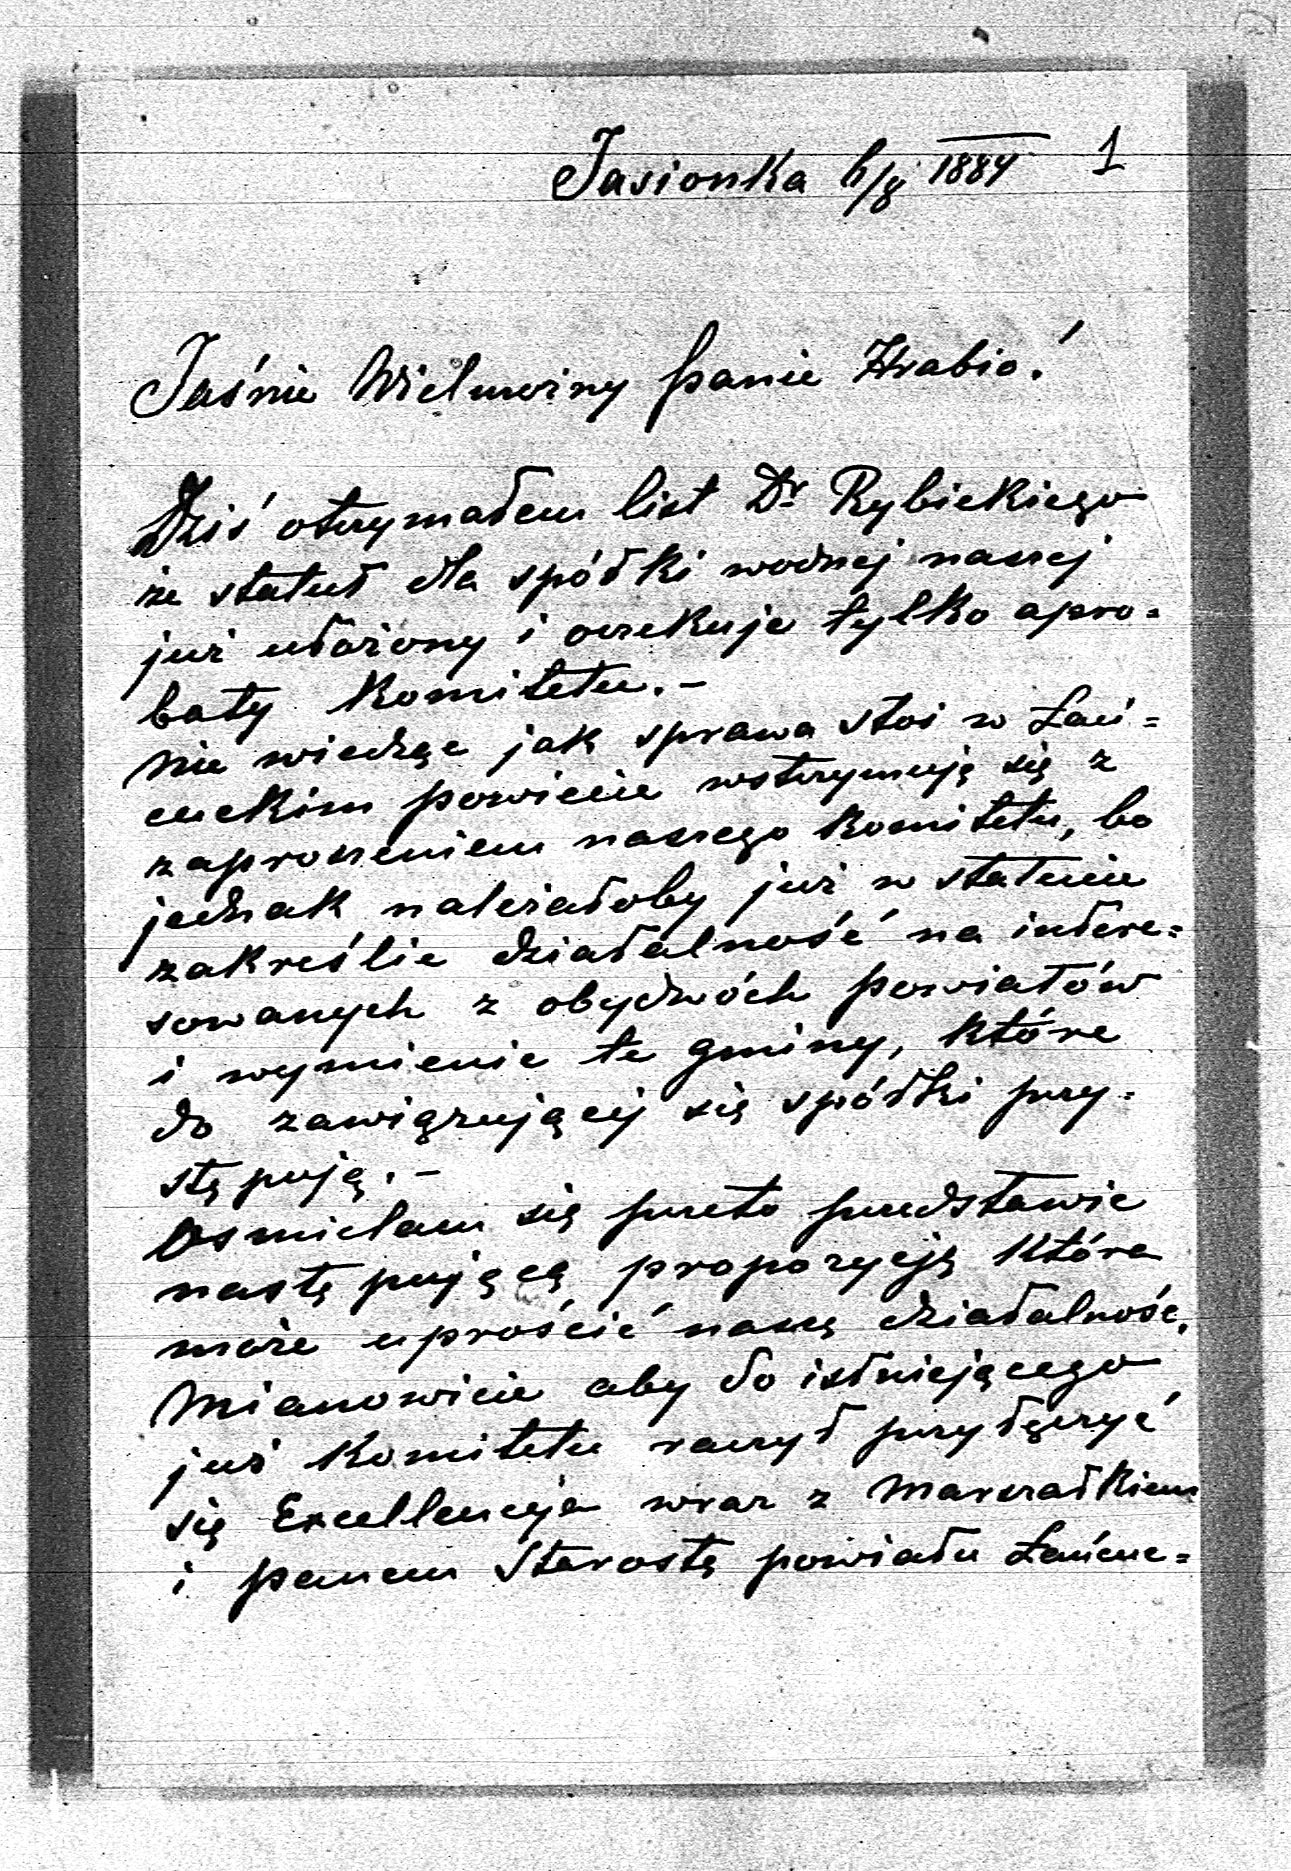 Jasionka 6/8 1884 1
Jaśnie Wielmożny Panie Hrabio!
Dziś otrzymałem list Dr Rybickiego
że statut dla spółki wodnej naszej
już ułożony i oczekuje tylko apro=
baty Komitetu.-
Nie wiedząc jak sprawa stoi w Łań=
cuckim powiecie wstrzymuję się z
zaproszeniem naszego Komitetu, bo
jednak należałoby już w statucie
zakreślić działalność na intere=
sowanych z obydwóch powiatów
i wymienić te gminy, które
do zawiązującej się spółki przy=
stępują.-
Ośmielam się przeto przedstawić
następującą propozycję która
może uprościć naszą działalność,
Mianowicie aby do istniejącego
już Komitetu raczył przyłączyć
się Excellencja wraz z Marszałkiem
i Panem Starostą powiatu Łańcuc=